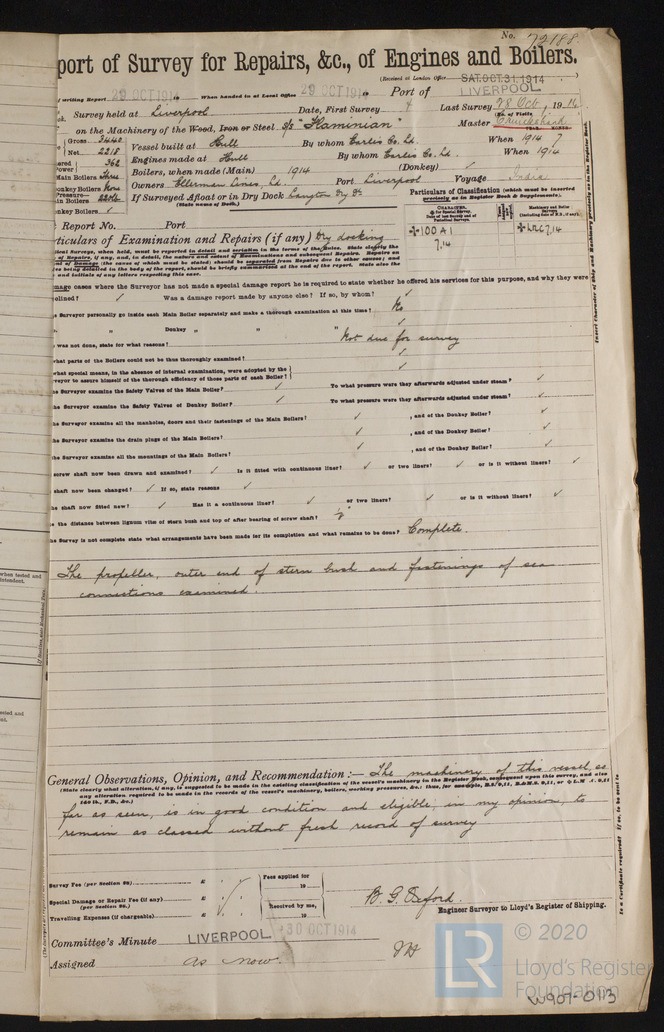 No. 72188
port of Survey for Repairs, &c., of Engines and Boilers.
(Received at London Office SAT. OCT. 31. 1914)
writing Report 29 OCT 1914 When handed in at Local Office 29 OCT 1914 Port of LIVERPOOL
Survey held at Liverpool Date, First Survey 4 Last Survey 28 Oct, 1914
(No. of Visits
on the Machinery of the Wood, Iron or Steel S/S "Flaminian" Master Cruickshank
YEAR. MONTH.
Gross 3440 Vessel built at Hull By whom Earles Co. Ld. When 1914 7
Net 2218
Engines made at Hull By whom Earles Co. Ld. When 1914
362
Main Boilers Three Boilers, when made (Main) 1914 (Donkey) ✓
Donkey Boilers None Owners Ellerman Lines, Ld. Port Liverpool Voyage India
Pressure—
in Boilers 220 lb If Surveyed Afloat or in Dry Dock Langton Dry Dk
(State name of Dock.)
nkey Boilers ✓
Particulars of Classification (which must be inserted
precisely as in Register Book & Supplements).
Report No. Port
+100 A1 7.14
+LMC 7,14
rticulars of Examination and Repairs (if any) Dry docking
mage cases where the Surveyor has not made a special damage report he is required to state whether he offered his services for this purpose, and why they were
clined? ✓ Was a damage report made by anyone else? If so, by whom? ✓
Surveyor personally go inside each Main Boiler separately and make a thorough examination at this time? No
" Donkey " " " ✓
was not done, state for what reasons? Not due for survey
hat parts of the Boilers could not be thus thoroughly examined? ✓
what special means, in the absence of internal examination, were adopted by the
veyor to assure himself of the thorough efficiency of those parts of each Boiler? ✓
Surveyor examine the Safety Valves of the Main Boiler? ✓ To what pressure were they afterwards adjusted under steam? ✓
he Surveyor examine the Safety Valves of Donkey Boiler? ✓ To what pressure were they afterwards adjusted under steam? ✓
he Surveyor examine all the manholes, doors and their fastenings of the Main Boilers? ✓ , and of the Donkey Boiler? ✓
he Surveyor examine the drain plugs of the Main Boilers? ✓ , and of the Donkey Boiler? ✓
he Surveyor examine all the mountings of the Main Boilers? ✓ , and of the Donkey Boiler? ✓
screw shaft now been drawn and examined? ✓ Is it fitted with continuous liner? ✓ or two liners? ✓ or is it without liners? ✓
shaft now been changed? ✓ If so, state reasons ✓
he shaft now fitted new? ✓ Has it a continuous liner? ✓ or two liners? ✓ or is it without liners? ✓
is the distance between lignum vitæ of stern bush and top of after bearing of screw shaft?
he Survey is not complete state what arrangements have been made for its completion and what remains to be done? Complete.
The propeller, outer end of stern bush and fastenings of sea
connections examined.
General Observations, Opinion, and Recommendation:— The machinery of this vessel, as
(State clearly what alteration, if any, is suggested to be made in the existing classification of the vessel's machinery in the Register Book, consequent upon this survey, and also
any alteration required to be made in the records of the vessel's machinery, boilers, working pressures, &c.; thus, for example, B.S. 9,11, B.&M.S. 9,11, or + L.M.C. 9,11
140 lb., F.D., &c.)
far as seen, is in good condition and eligible, in my opinion, to
remain as classed without fresh record of survey
Survey Fee (per Section 28) £ : : Fees applied for
19
Special Damage or Repair Fee (if any) £ : :
(per Section 28.)
Received by me,
Travelling Expenses (if chargeable) £ : : 19
Engineer Surveyor to Lloyd's Register of Shipping.
Committee's Minute LIVERPOOL 30 OCT 1914
Assigned as now.
LR © 2020
Lloyd's Register
Foundation
W907-0113